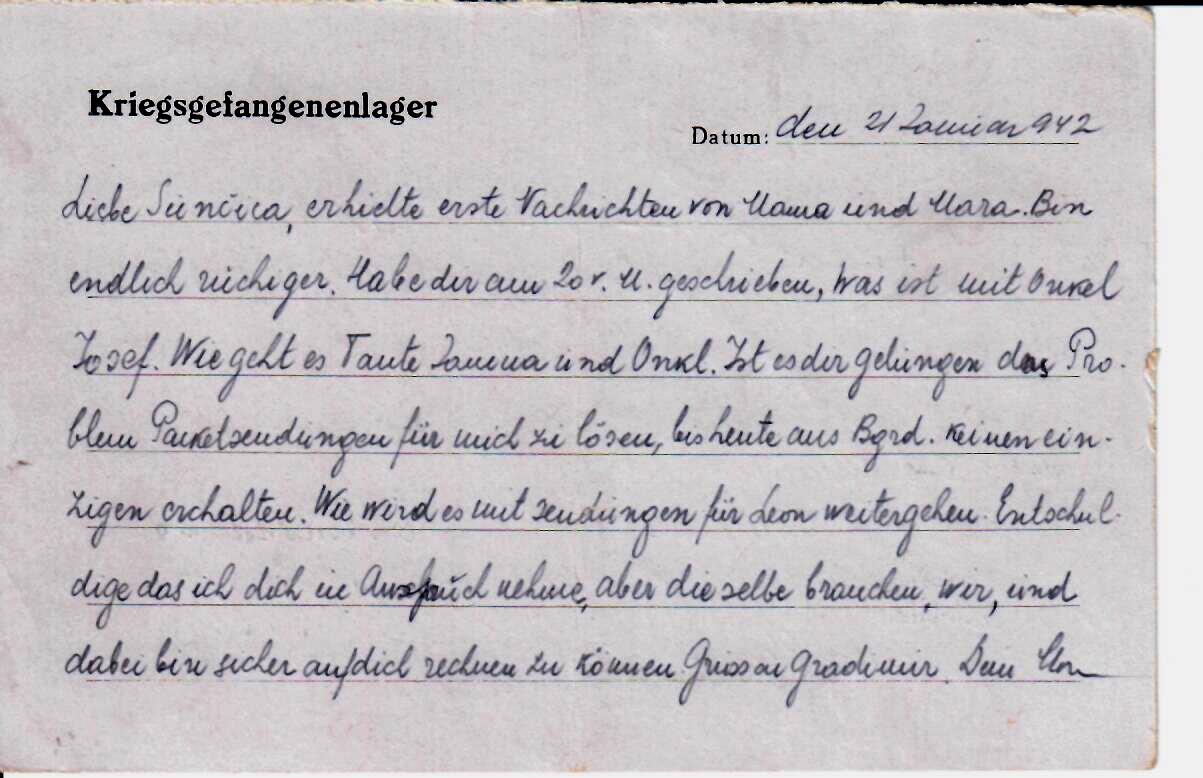 Kriegsgefangenenlager
Datum: den 21 Januar 942
Liebe Sunčica, erhielte erste Nachrichten von Mama und Mara. Bin
endlich ruhiger. Habe dir am 20 v. M. geschrieben, Was ist mit Onkel
Josef. Wie geht es Tante und Onkl. Ist es dir gelungen das Pro-
blem Paketsendungen für mich zu lösen, bis heute aus Bgrd. keinen ein-
zigen erhalten. Wie wird es mit sendungen für Leon weitergehen. Entschul-
dige das ich dich in Anspruch nehme, aber die selbe brauchen, wir, und
dabei bin sicher auf dich rechnen zu können Gradimir. Dein